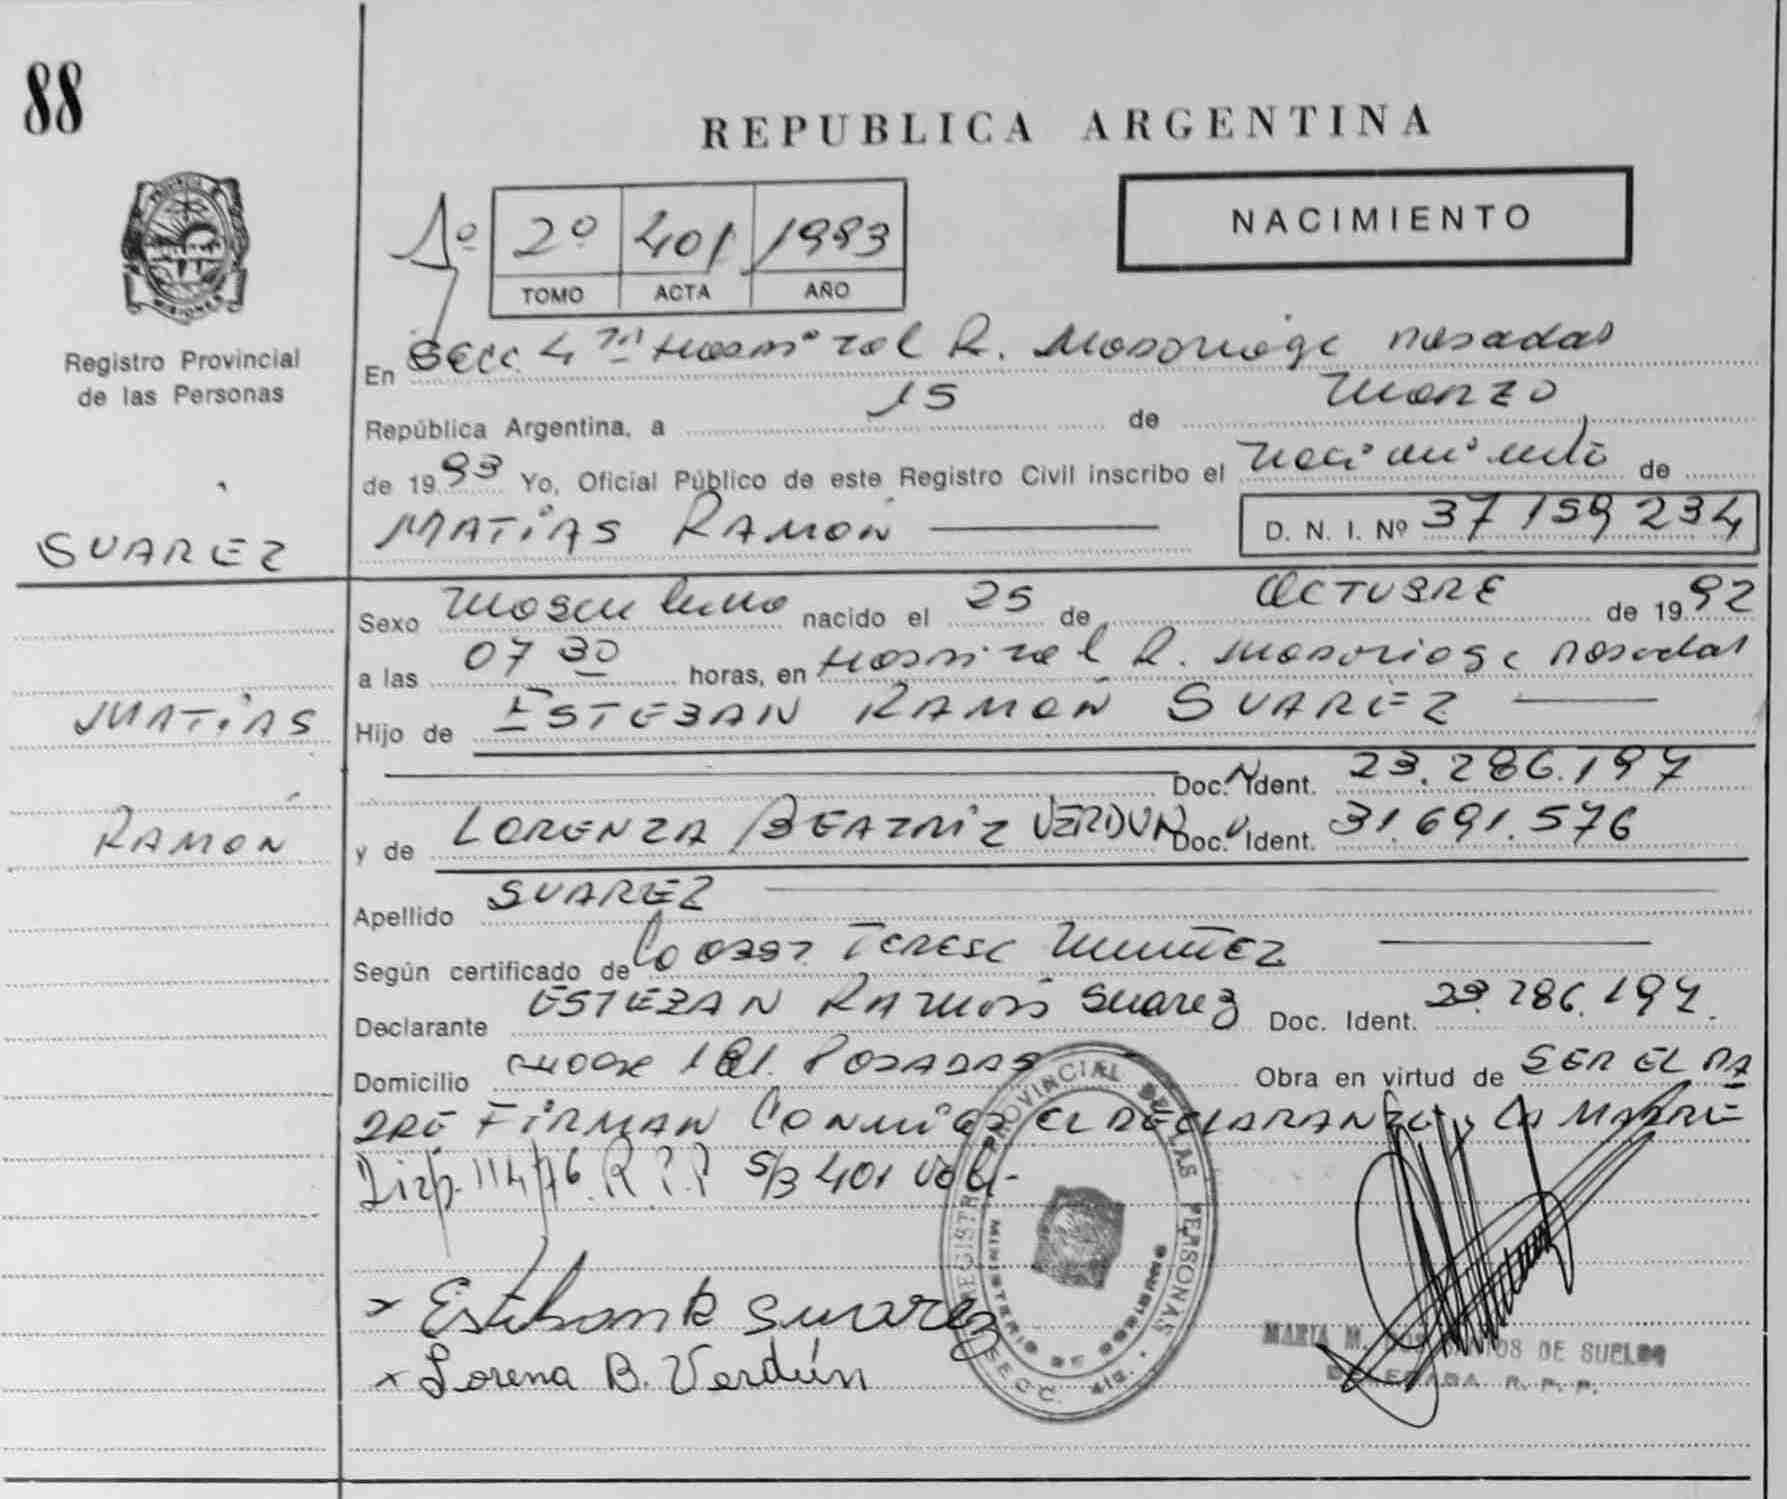 88
REPUBLICA ARGENTINA
NACIMIENTO
1º 2º 401 1993
TOMO ACTA AÑO
Registro Provincial
de las Personas
En Secc 4 Hospital R. Posadas
República Argentina, a 15 de Marzo
de 1993 Yo, Oficial Público de este Registro Civil inscribo el nacimiento de
SUAREZ
MATÍAS RAMON D. N. I. Nº 37 159 234
Sexo Masculino nacido el 25 de OCTUBRE de 1992
a las 07 30 horas, en Hospital R. Posadas
MATÍAS
Hijo de ESTEBAN RAMON SUAREZ
Doc. Ident. 23.286.197
RAMON
y de LORENZA BEATRIZ VERDUN Doc. Ident. 31.691.576
Apellido SUAREZ
Según certificado de Terese
Declarante ESTEBAN RAMON Suarez Doc. Ident. 23.286.197.
Domicilio 181. POSADAS Obra en virtud de SER EL PA
DRE FIRMAN CONMIGO EL DECLARANTE y LA MADRE
Disp. 114/76. R.P.P S/B 401 Vale.-
x Esteban R Suarez
x Lorena B. Verdún
REGISTRO PROVINCIAL DE LAS PERSONAS
MINISTERIO DE GOBIERNO
SECC. 4ta.
MARIA M. DE SUELDO
R. P. P.